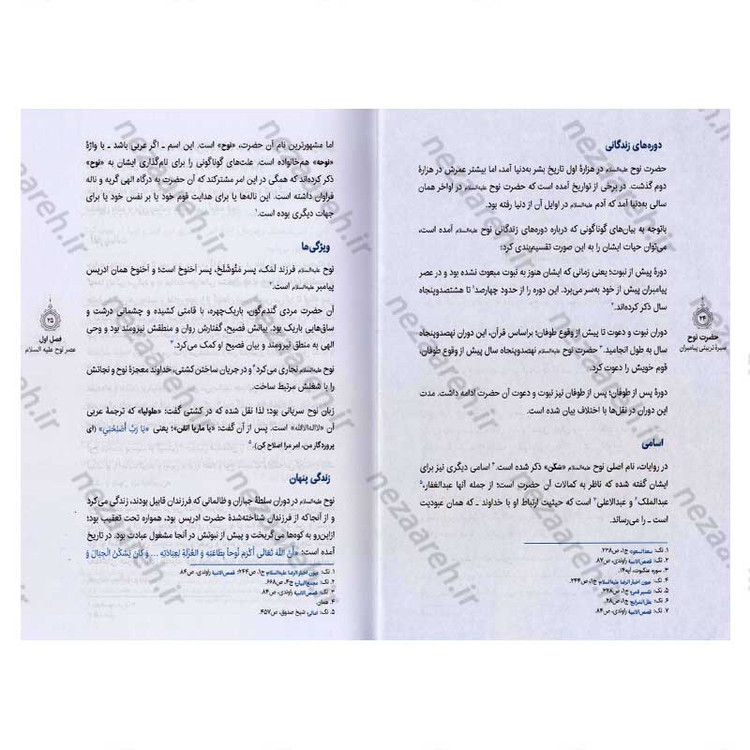 دوره‌های زندگانی
حضرت نوح علیه‌السلام در هزارهٔ اول تاریخ بشر به‌دنیا آمد، اما بیشتر عمرش در هزارهٔ
دوم گذشت. در برخی از تواریخ آمده است که حضرت نوح علیه‌السلام در اواخر همان
سالی به‌دنیا آمد که آدم علیه‌السلام در اوایل آن از دنیا رفته بود.
باتوجه به بیان‌های گوناگونی که درباره دوره‌های زندگانی نوح علیه‌السلام آمده است،
می‌توان حیات ایشان را به این صورت تقسیم‌بندی کرد:
دورهٔ پیش از نبوت؛ یعنی زمانی که ایشان هنوز به نبوت مبعوث نشده بود و در عصر
پیامبران پیش از خود به‌سر می‌برد. این دوره را از حدود چهارصد۱ تا هشتصدوپنجاه
سال ذکر کرده‌اند.۲
دوران نبوت و دعوت تا پیش از وقوع طوفان؛ براساس قرآن، این دوران نهصدوپنجاه
سال به طول انجامید.۳ حضرت نوح علیه‌السلام نهصدوپنجاه سال پیش از وقوع طوفان،
قوم خویش را دعوت کرد.
دورهٔ پس از طوفان؛ پس از طوفان نیز نبوت و دعوت آن حضرت ادامه داشت. مدت
این دوران در نقل‌ها با اختلاف بیان شده است.
اسامی
در روایات، نام اصلی نوح علیه‌السلام «سَکَن» ذکر شده است.۴ اسامی دیگری نیز برای
ایشان گفته شده که ناظر به کمالات آن حضرت است؛ از جمله آنها عبدالغفار،۵
عبدالملک۶ و عبدالاعلی۷ است که حیثیت ارتباط او با خداوند ـ که همان عبودیت
است ـ را می‌رساند.
۱. نک: سعدالسعود، ص۲۳۸.
۲. نک: قصص‌الانبیاء راوندی، ص۸۷.
۳. سوره عنکبوت، آیه۱۴.
۴. نک: عیون اخبار الرضا علیه‌السلام ج۱، ص۲۴۴.
۵. نک: تفسیر قمی؛ ج۱، ص۳۲۸.
۶. نک: علل الشرایع ج۱، ص۲۸.
۷. نک: قصص‌الانبیاء راوندی، ص۸۴.
۲۴
حضرت نوح
سیرهٔ تربیتی پیامبران
اما مشهورترین نام آن حضرت، «نوح» است. این اسم ـ اگر عربی باشد ـ با واژهٔ
«نوحه» هم‌خانواده است. علت‌های گوناگونی را برای نام‌گذاری ایشان به «نوح»
ذکر کرده‌اند که همگی در این امر مشترکند که آن حضرت به درگاه الهی گریه و ناله
فراوان داشته است. این ناله‌ها یا برای هدایت قوم خود یا بر نفس خود یا برای
جهات دیگری بوده است.۱
ویژگی‌ها
نوح علیه‌السلام فرزند لَمَک، پسر مَتُّوشَلَخ، پسر اَخنوخ است؛ و اَخنوخ همان ادریس
پیامبر علیه‌السلام است.۲
آن حضرت مردی گندم‌گون، باریک‌چهره، با قامتی کشیده و چشمانی درشت و
ساق‌هایی باریک بود. بیانش فصیح، گفتارش روان و منطقش نیرومند بود و وحی
الهی به منطق نیرومند و بیان فصیح او کمک می‌کرد.۳
نوح علیه‌السلام نجاری می‌کرد۴ و در جریان ساختن کشتی، خداوند معجزهٔ نوح و نجاتش
را با شغلش مرتبط ساخت.
زبان نوح سریانی بود؛ لذا نقل شده که در کشتی گفت: «هلولیا» که ترجمهٔ عربی
آن «لااله‌الاالله» است. پس از آن گفت: «یا ماریا اتقن»؛ یعنی «یَا رَبِّ أَصْلِحْنِي» (ای
پروردگار من، امر مرا اصلاح کن).۵
زندگی پنهان
نوح علیه‌السلام در دوران سلطهٔ جباران و ظالمانی که فرزندان قابیل بودند، زندگی می‌کرد
و از آنجا‌که از فرزندان شناخته‌شدهٔ حضرت ادریس بود، همواره تحت تعقیب بود؛
ازاین‌رو به کوه‌ها می‌گریخت و پیش از نبوتش در آنجا مشغول عبادت بود. در تاریخ
آمده است: «أَنَّ اللهَ تَعَالَى أَكْرَمَ نُوحاً بِطَاعَتِهِ وَ الْعُزْلَةِ لِعِبَادَتِهِ ... وَ كَانَ يَسْكُنُ الْجِبَالَ وَ
۱. نک: عیون اخبار الرضا علیه‌السلام ج۱، ص۲۴۴؛ قصص‌الانبیاء راوندی، ص۸۶.
۲. نک: مجمع‌البیان ج۴، ص۶۶۸.
۳. نک: قصص‌الانبیاء راوندی، ص۸۴.
۴. همان.
۵. نک: امالی شیخ صدوق، ص۴۵۷.
۲۵
فصل اول
عصر نوح علیه السلام
nezaareh.ir